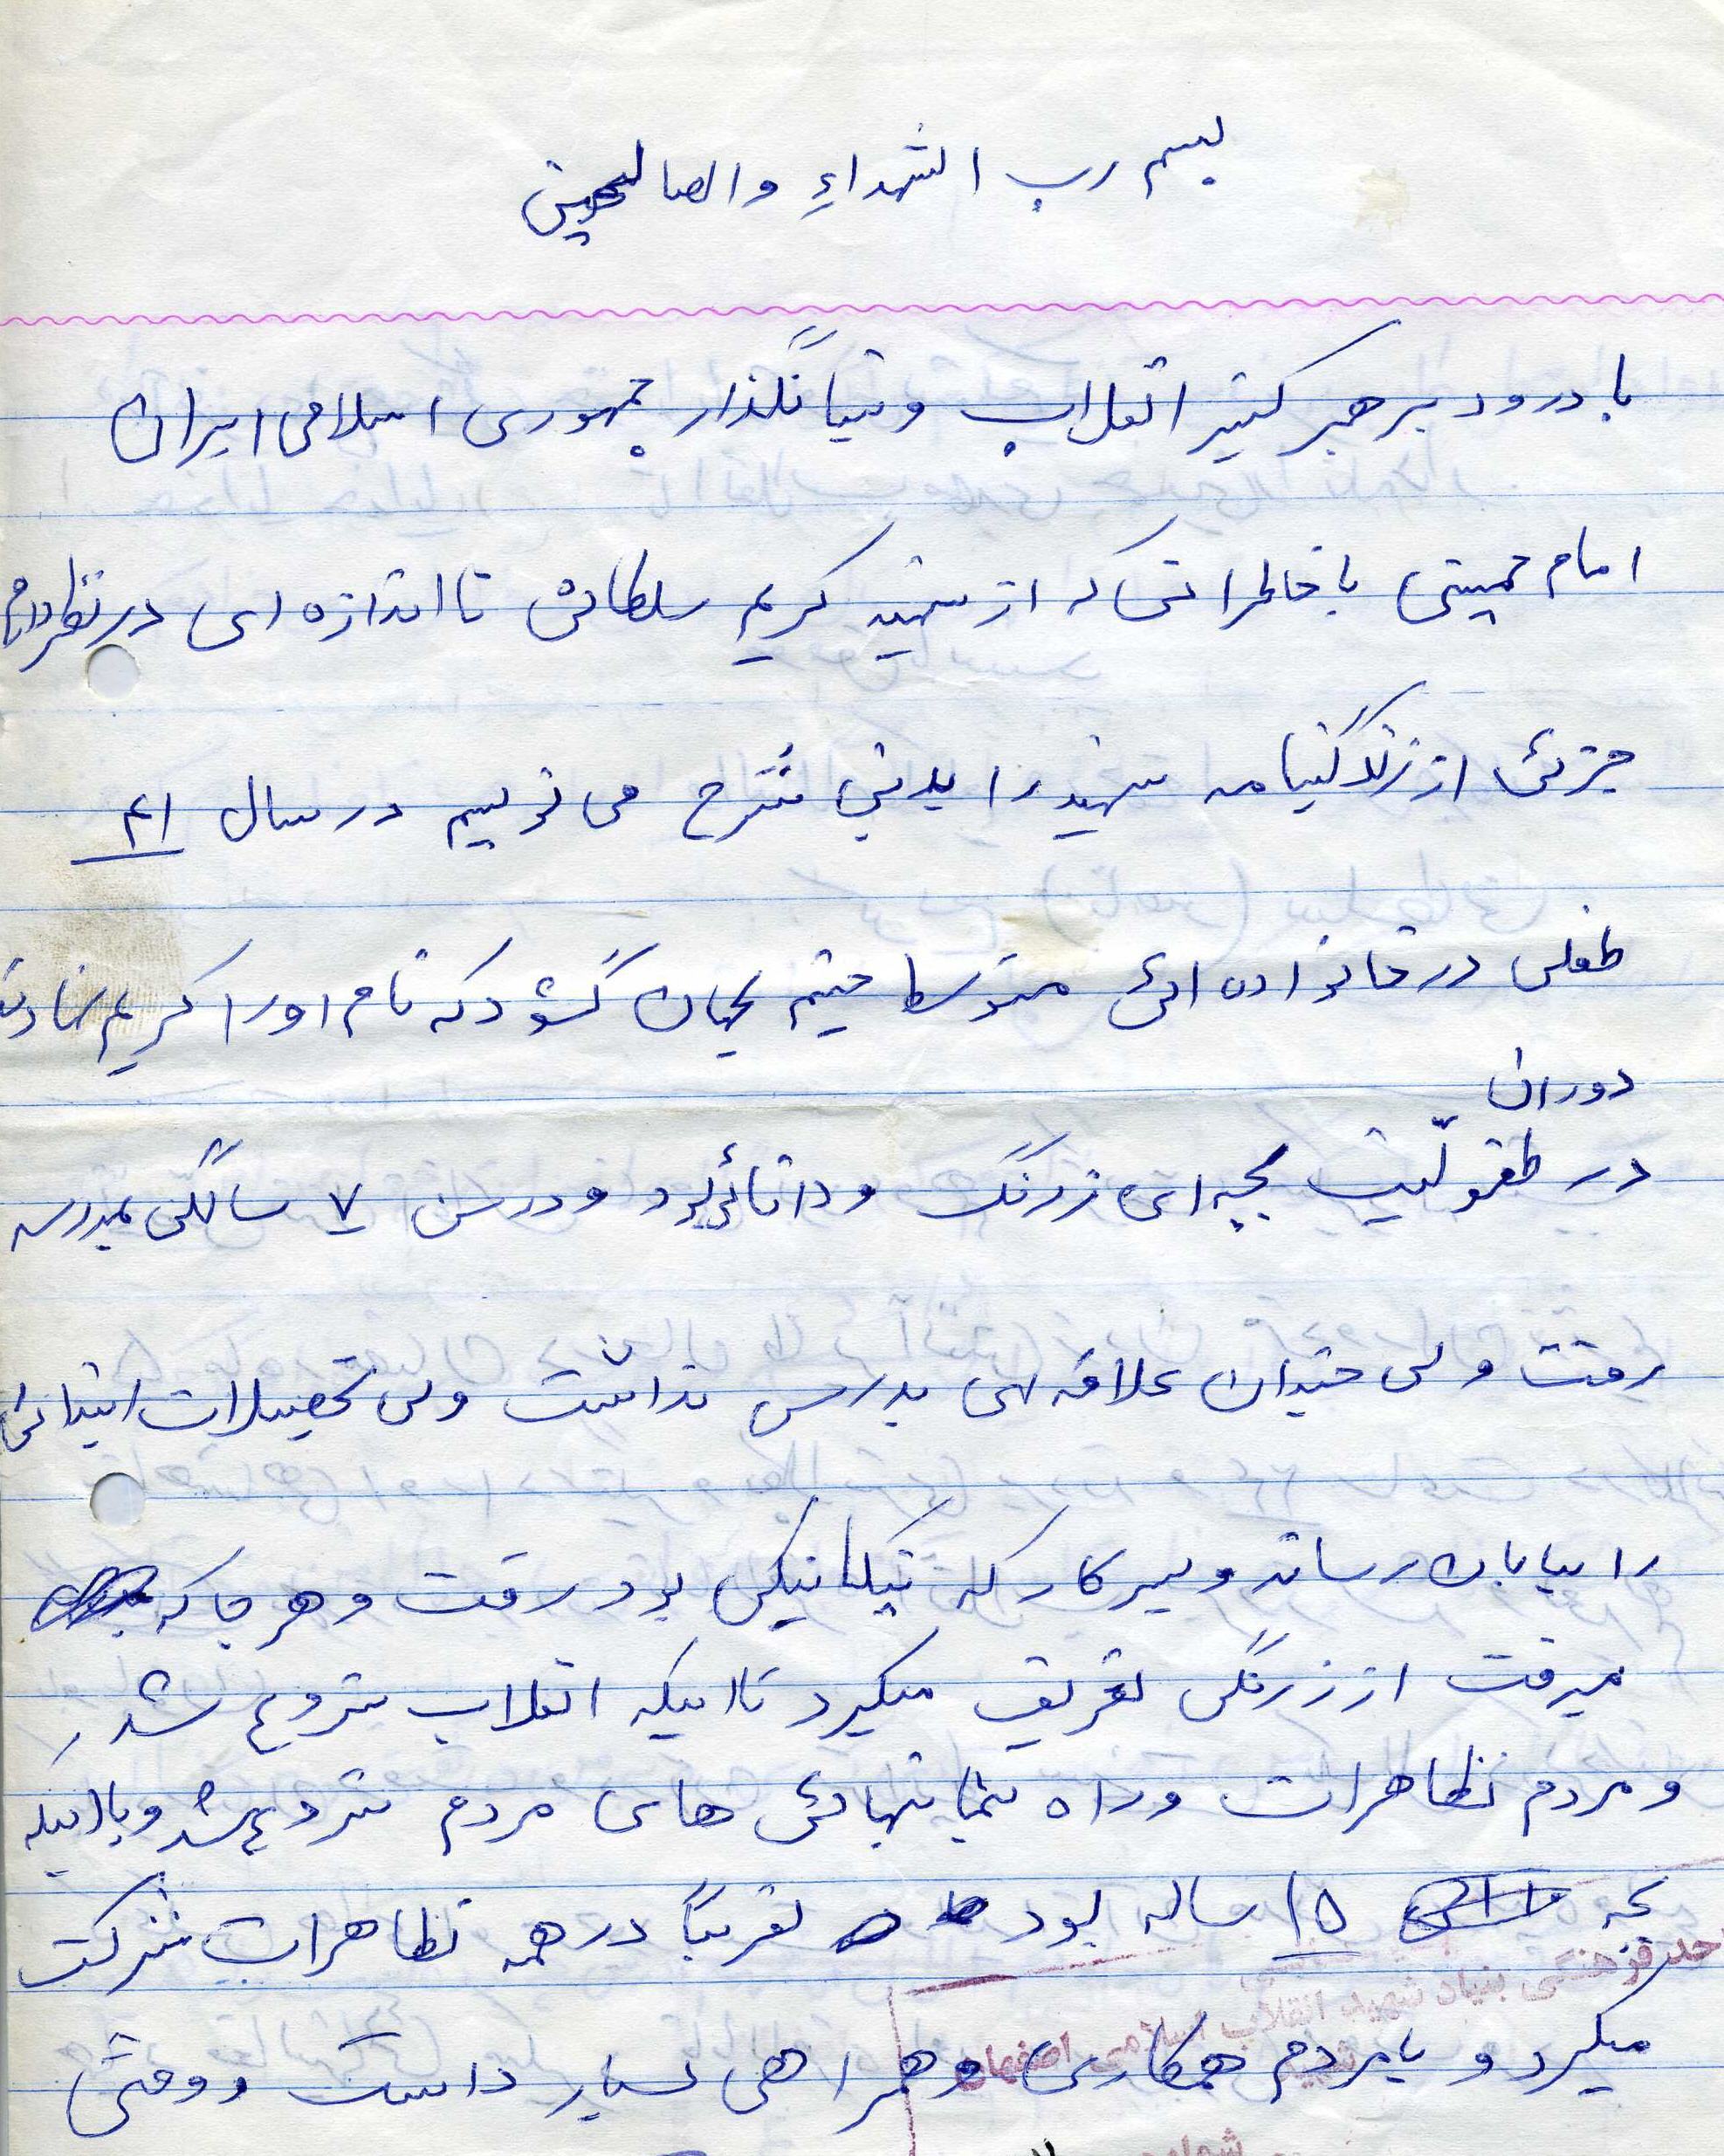 بسم رب الشهداءِ والصالحین
با درود بر رهبر کبیر انقلاب و بنیانگذار جمهوری اسلامی ایران
امام خمینی با خاطراتی که از شهید کریم سلطانی تا اندازه ای در نظر دارم
جزئی از زندگینامه شهید را بدین شرح می نویسم در سال ۴۱
طفلی در خانواده ائی متوسط چشم بجهان گشود که نام او را کریم نهادند
دوران
در طفولّیت بچه ای زرنگ و دانائی بود و در سن ۷ سالگی بمدرسه
رفت ولی چندان علاقه ای بدرس نداشت ولی تحصیلات ابتدائی
را بپایان رساند و بسر کار که مکانیکی بود رفت و هر جا که
میرفت از زرنگی تعریف میکرد تا اینکه انقلاب شروع شد
و مردم تظاهرات و راه پیمائی های مردم شروع شد و با اینکه
بچه ۱۵ ساله بود تقریباً در همه تظاهرات شرکت
میکرد و با مردم همکاری و همراهی بسیار داشت و وقتی
واحد فرهنگی بنیاد شهید انقلاب اسلامی اصفهان
شماره